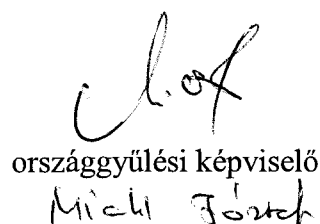 országgyűlési képviselő
Michl József